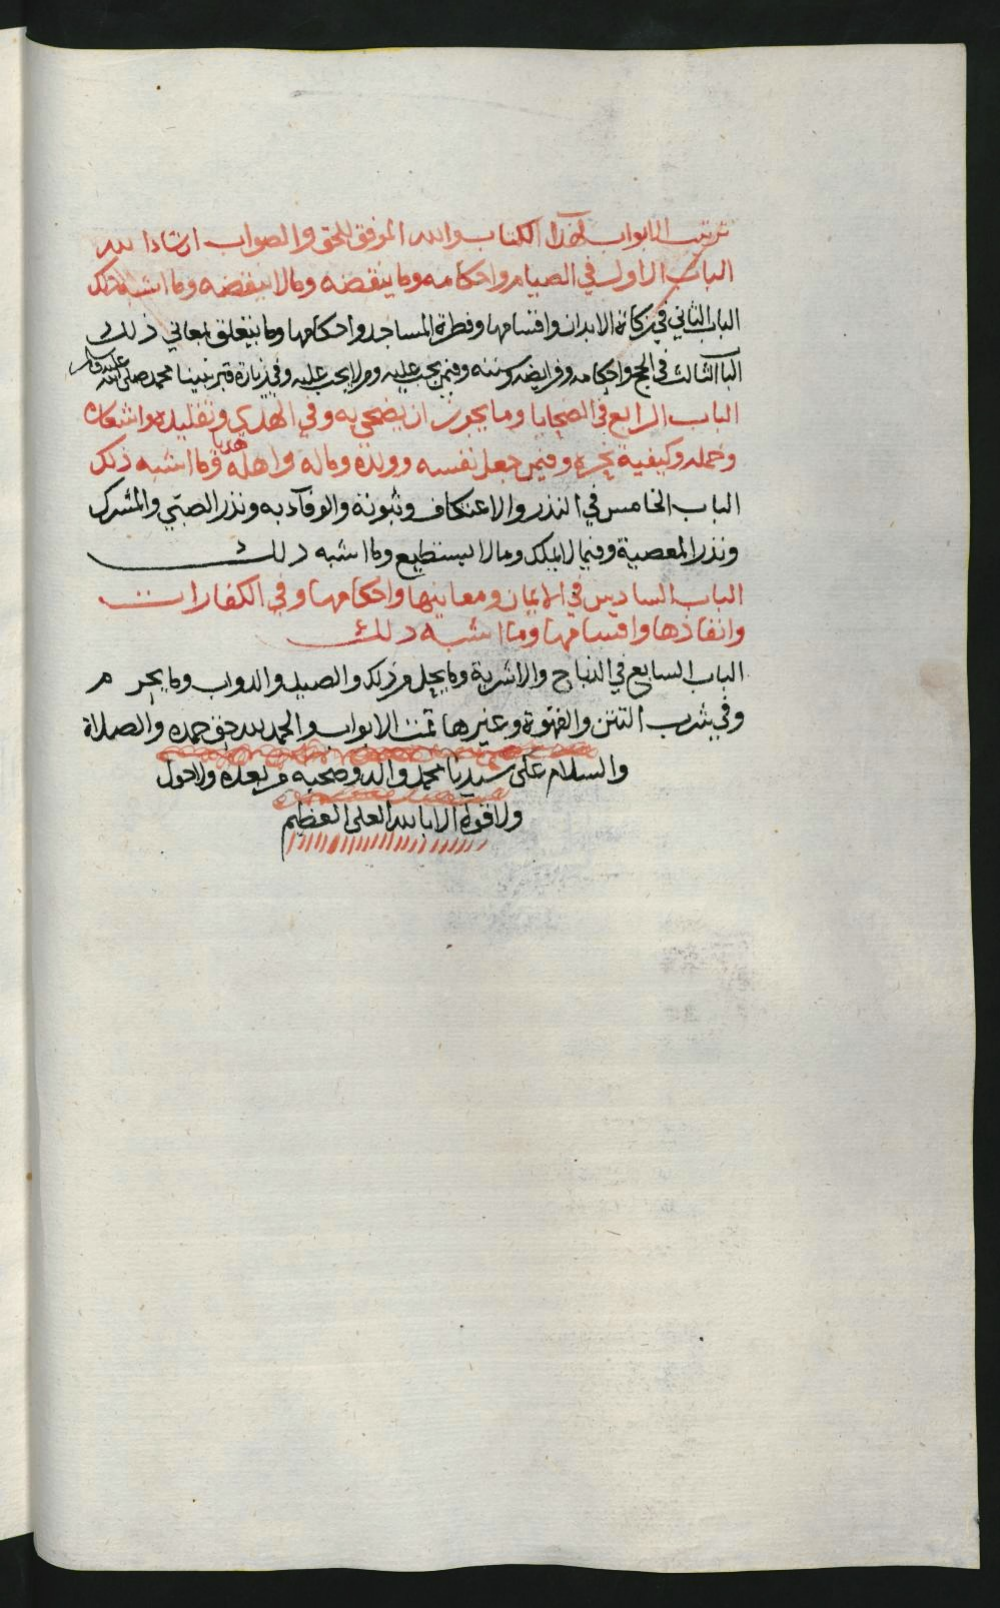 ترتيب الابواب لهذا الكتاب والله الموفق للحق والصواب ان شاء الله
الباب الاول في الصيام واحكامه وما ينقضه وما لا ينقضه وما اشبه ذلك
الباب الثاني في زكاة الابدان واقسامها وفطرة المساجد واحكامها وما يتعلق بمعاني ذلك
الباب الثالث في الحج واحكامه وفرايضه وسننه وفيمن يجب عليه ومن لا يجب عليه وفي زيارة قبر نبينا محمد صلى الله عليه وسلم
الباب الرابع في الضحايا وما يجوز ان يضحي به وفي الهدي وتقليده واشعاره
وحمله وكيفية نحره وفيمن جعل نفسه وولده وماله واهله هديا وما اشبه ذلك
الباب الخامس في النذر والاعتكاف وثبوته والوفا به ونذر الصبي والمشرك
ونذر المعصية وفيما لا يملك وما لا يستطيع وما اشبه ذلك
الباب السادس في الايمان ومعانيها واحكامها وفي الكفارات
وانفاذها واقسامها وما اشبه ذلك
الباب السابع في الذباح والاشربة وما يحل من ذلك والصيد والدواب وما يحرم
وفي شرب التتن والقهوة وغيرها تمت الابواب والحمد لله حق حمده والصلاة
والسلام على سيدنا محمد واله وصحبه من بعده ولا حول
ولا قوة الا بالله العلي العظيم